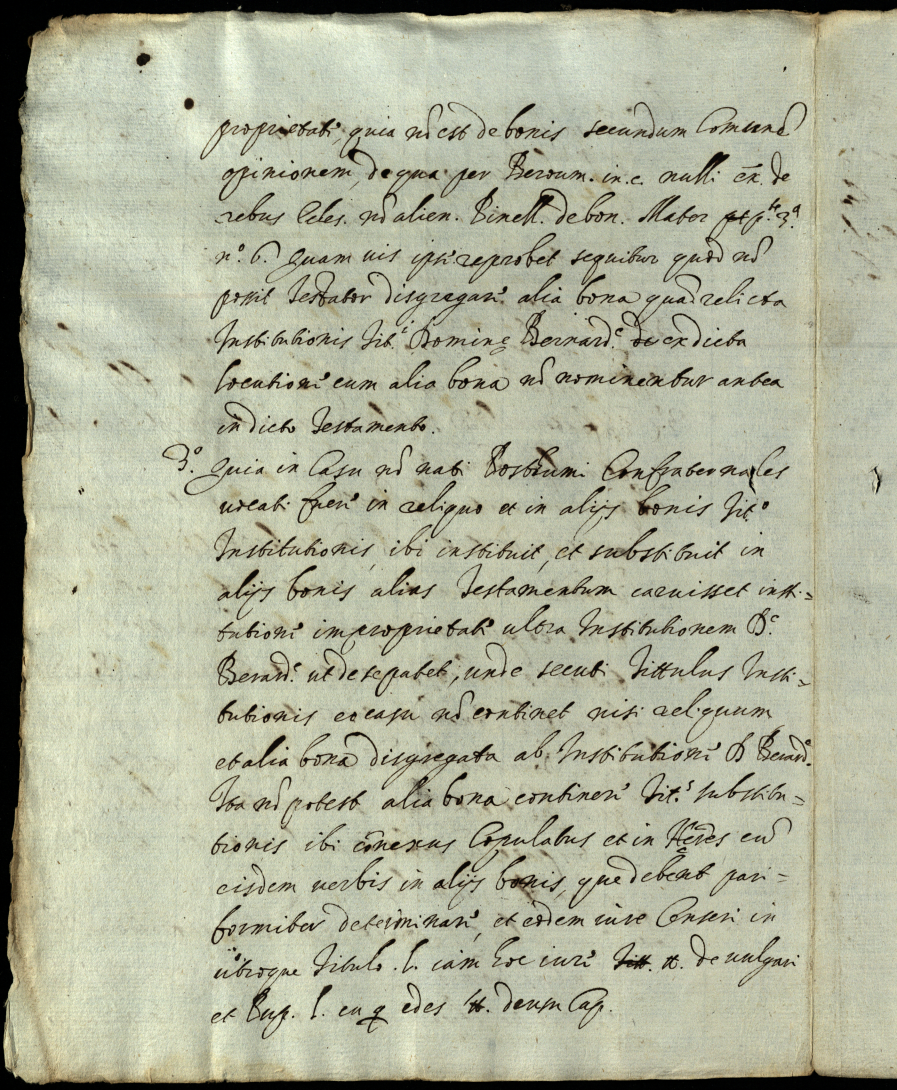 proprietati, quia nō est de bonis secundum Comunē
opinionem, de qua per Beroum. in. c. nulli ex. de
rebus Ecles. nō alien. Pinell. de bon. Mater p.te 3.a
n.o 6. quam vis ipse reprobet sequitur quod nō
posit Testator disgregari alia bona quā relicta
Institutionis Tit. Domine Bernard. ex dicta
locutione cum alia bona nō nominentur antea
in dicto Testamento.
3.o Quia in Casu nō nati Postumi Confraternales
vocati fueri in reliquo et in alijs bonis Tit.o
Institutionis, ibi instituit, et substituit in
alijs bonis alias Testamentum caruisset insti-
tutione improprietati ultra Institutionem D.e
Berard. ut de se patet, unde secuti Tittulus Insti-
tutionis eo casu nō continet nisi reliquum
et alia bona disgregata ab Institutione D Berard.
Ita nō potest alia bona contineri Tit. substitu-
tionis ibi cōnexus Copulatus et in Heredes cū
eisdem verbis in alijs bonis, que debent pari-
formiter determinari, et eodem iure Censeri in
utroque Titulo. l. iam hoc iure ff. de vulgari
et Pup. l. edes ff. Cap.